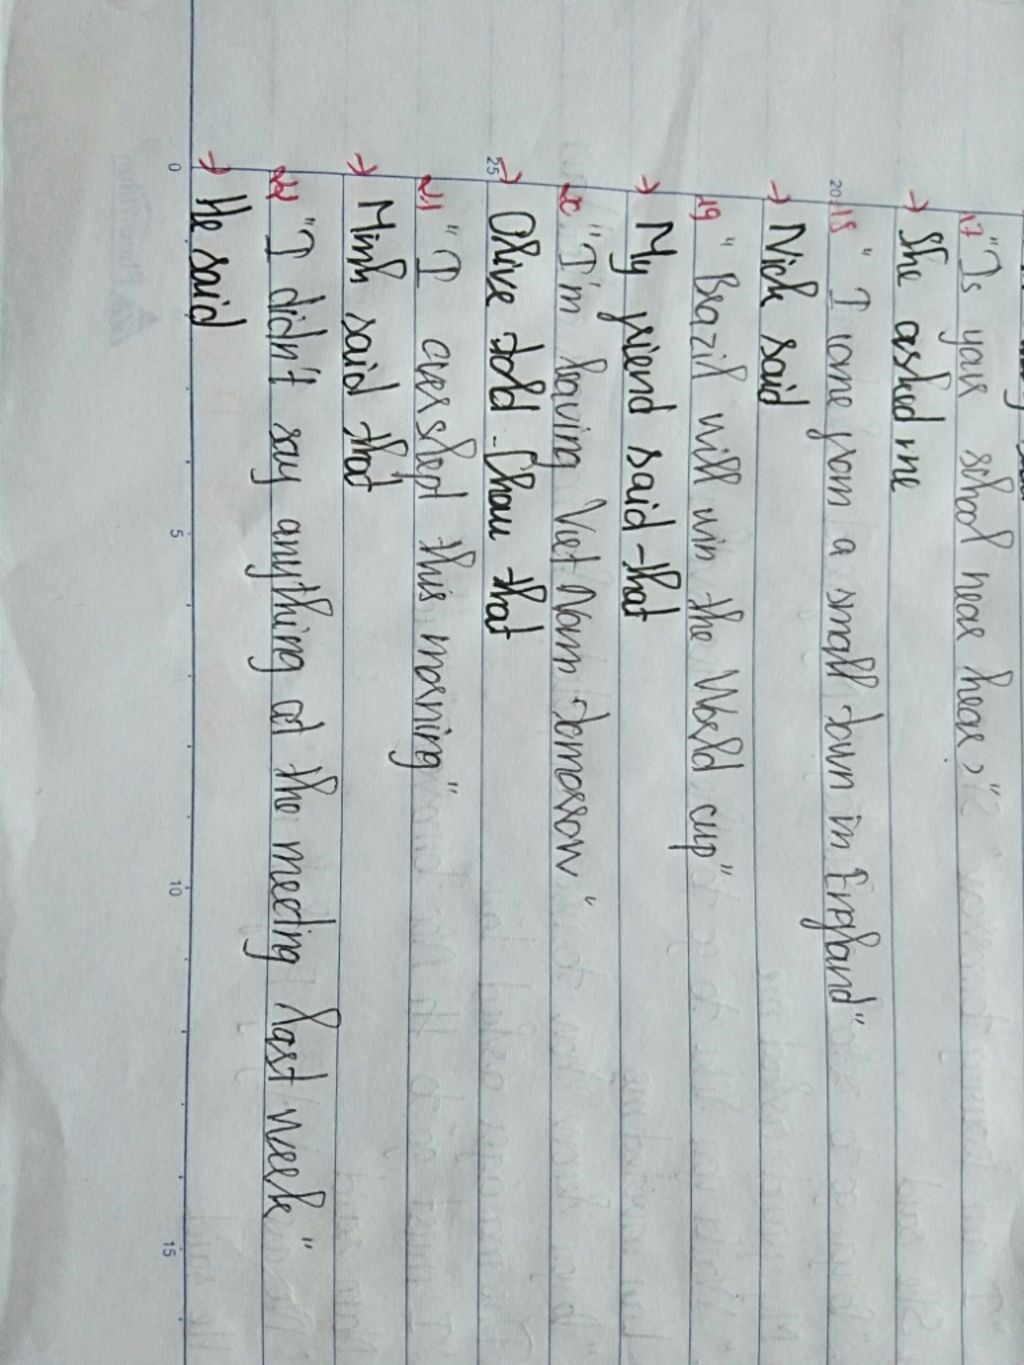 17 "Is your school near hear?"
→ She asked me
18 "I come from a small town in England"
→ Nick said
19 "Brazil will win the World cup"
→ My friend said that
20 "I'm leaving Viet Nam tomorrow"
→ Olive told Chau that
21 "I overslept this morning"
→ Minh said that
22 "I didn't say anything at the meeting last week"
→ He said
20
25
0
5
10
15